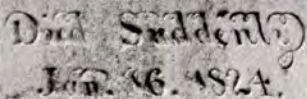 Died Suddenly
Jan. 16. 1824.